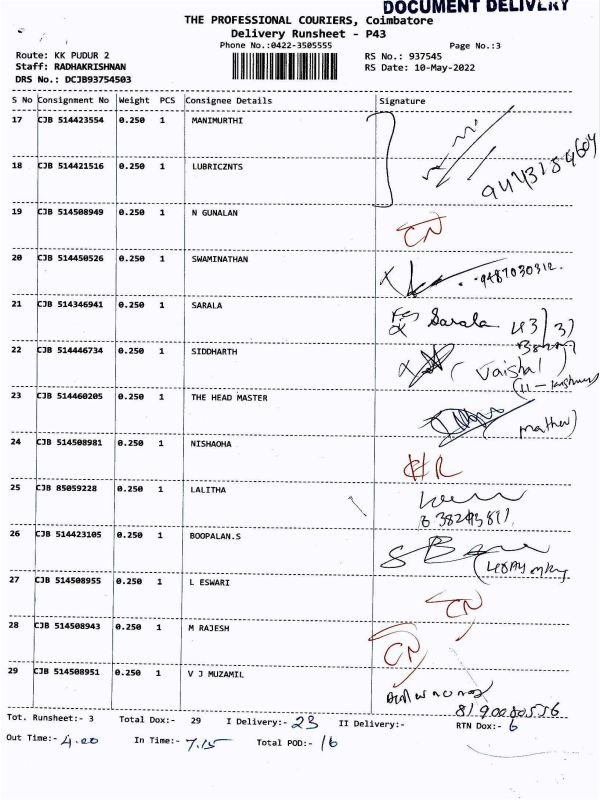 DOCUMENT DELIVERY
THE PROFESSIONAL COURIERS, Coimbatore
Delivery Runsheet - P43
Phone No.:0422-3505555
Page No.:3
Route: KK PUDUR 2
RS No.: 937545
Staff: RADHAKRISHNAN
RS Date: 10-May-2022
DRS No.: DCJB93754503
S No Consignment No Weight PCS Consignee Details Signature
17 CJB 514423554 0.250 1 MANIMURTHI
18 CJB 514421516 0.250 1 LUBRICZNTS 9443184604
19 CJB 514508949 0.250 1 N GUNALAN CN
20 CJB 514450526 0.250 1 SWAMINATHAN 9487030312.
21 CJB 514346941 0.250 1 SARALA Sarala
22 CJB 514446734 0.250 1 SIDDHARTH
23 CJB 514460205 0.250 1 THE HEAD MASTER
24 CJB 514508981 0.250 1 NISHAOHA
25 CJB 85059228 0.250 1 LALITHA
26 CJB 514423105 0.250 1 BOOPALAN.S
27 CJB 514508955 0.250 1 L ESWARI CN
28 CJB 514508943 0.250 1 M RAJESH CN
29 CJB 514508951 0.250 1 V J MUZAMIL
8190080556
Tot. Runsheet:- 3 Total Dox:- 29 I Delivery:- 23 II Delivery:- RTN Dox:- 6
Out Time:- 4.00 In Time:- 7.15 Total POD:- 16